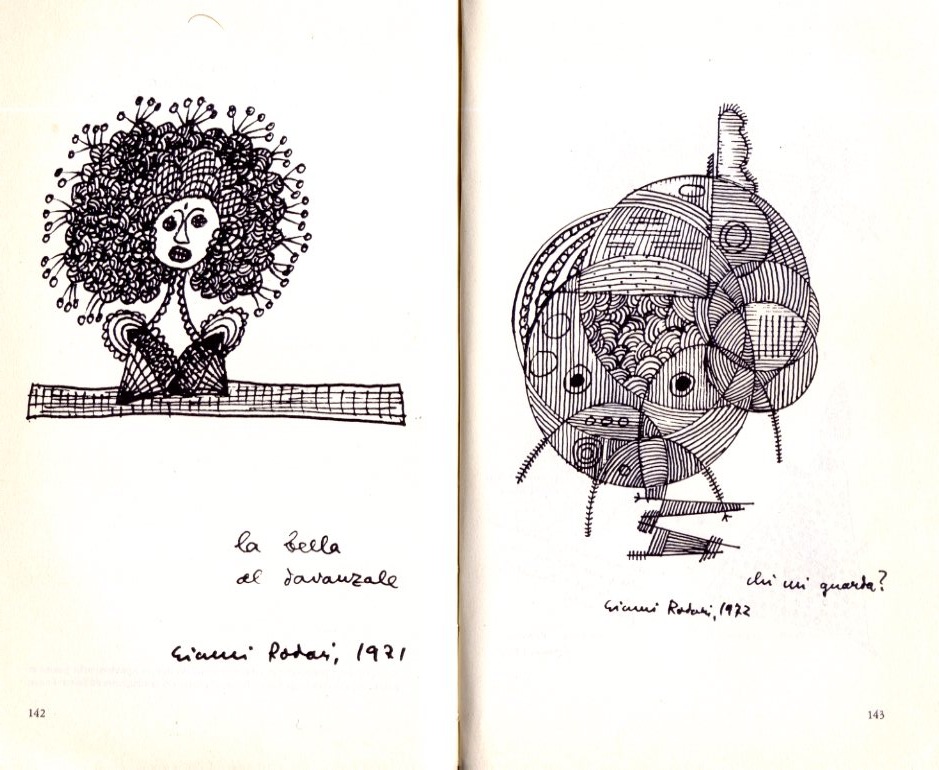 la bella
al davanzale
Gianni Rodari, 1971
142
chi mi guarda?
Gianni Rodari, 1972
143